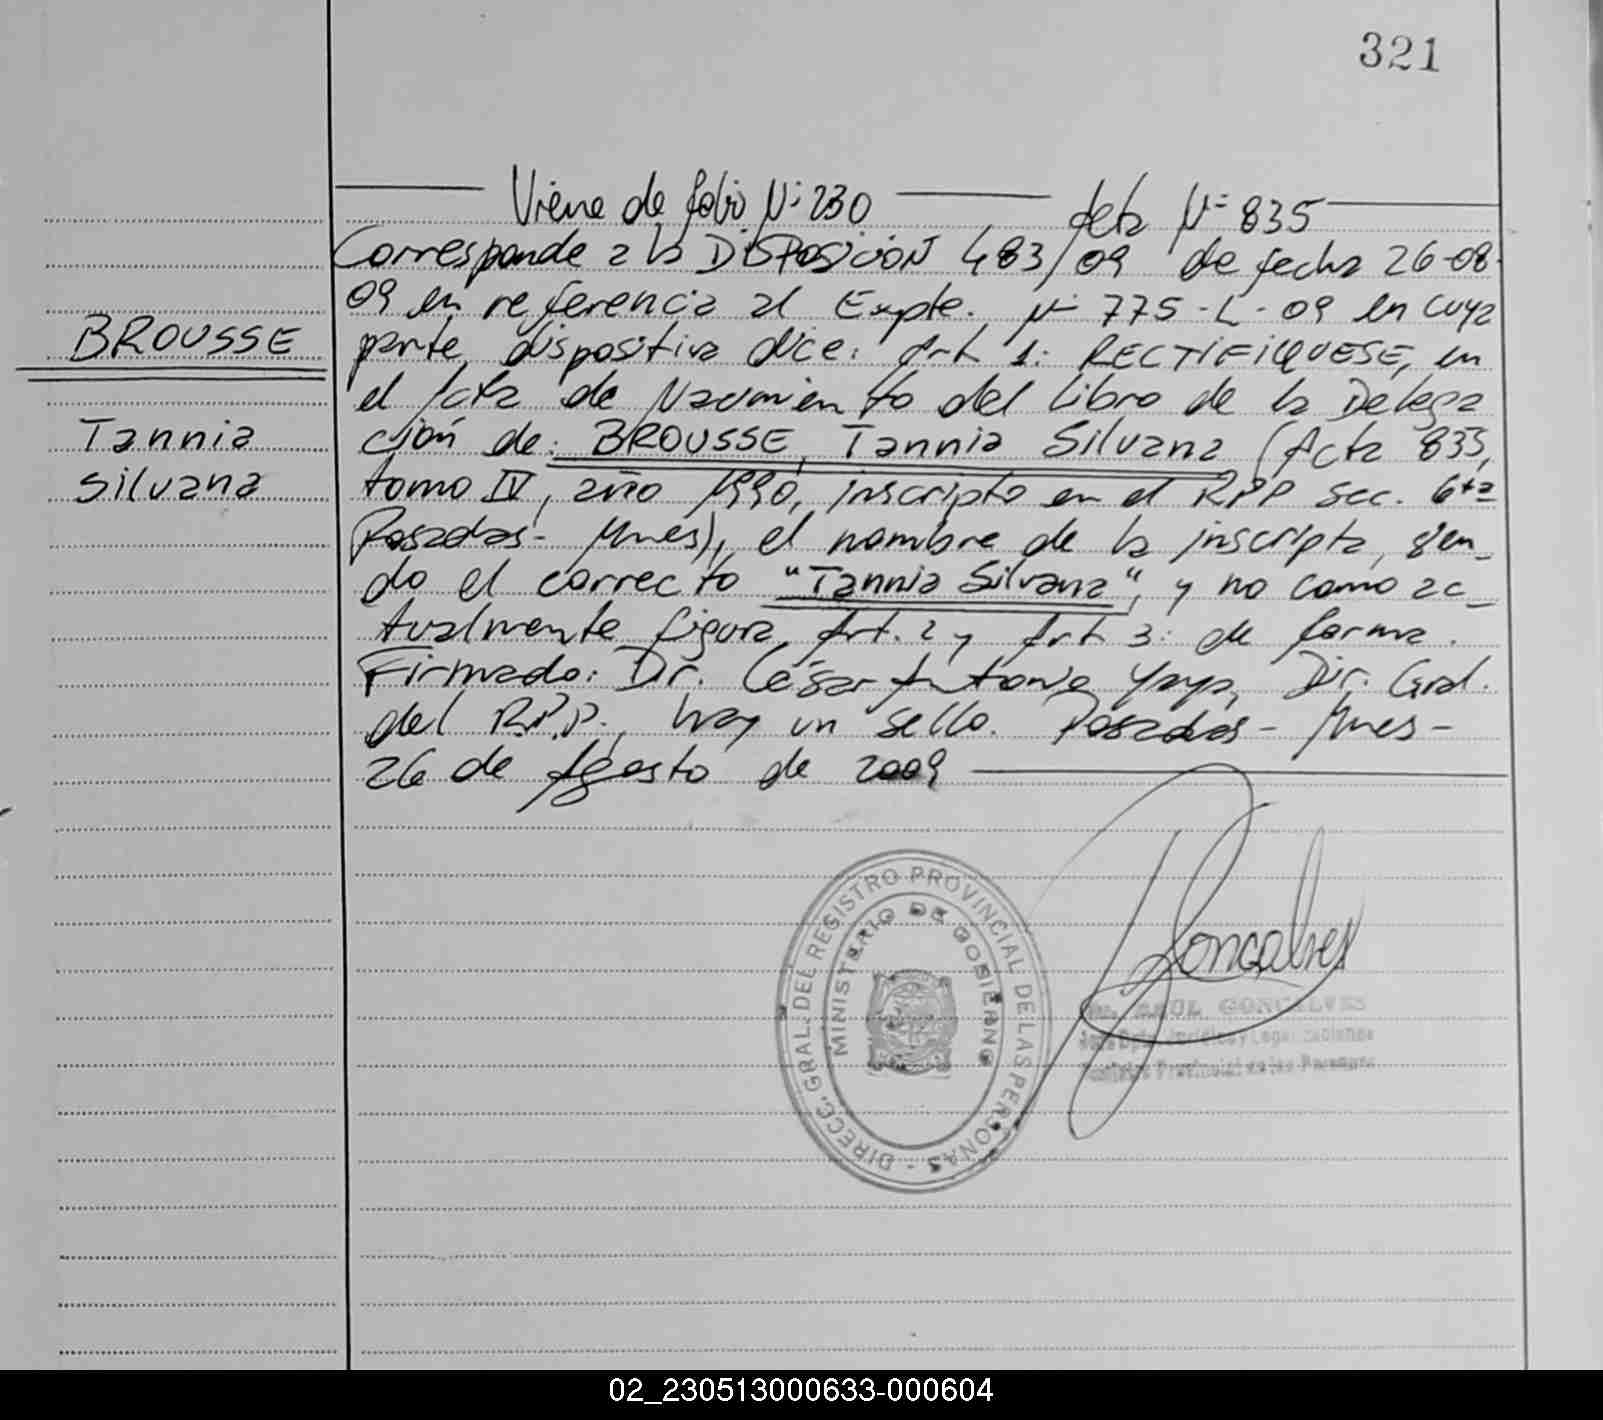 321
Viene de folio Nº 230 Acta Nº 835
Corresponde a la DISPOSICION 483/09 de fecha 26-08-
09 en referencia al Expte. Nº 775-L-09 en cuya
parte dispositiva dice: Art 1: RECTIFIQUESE, en
BROUSSE
el Acta de Nacimiento del Libro de la Delega
Tannia
ción de: BROUSSE, Tannia Silvana (Acta 835,
silvana
tomo IV, año 1990, inscripto en el RPP Sec. 6ta
Posadas- Mnes), el nombre de la inscripta, sien_
do el correcto "Tannia Silvana", y no como ac_
tualmente figura. Art. 2 y Art 3: de forma.
Firmado: Dr. César Antonio Yaya, Dir. Gral.
del R.P.P., hay un sello. Posadas- Mnes-
26 de Agosto de 2009
DIRECC. GRAL. DEL REGISTRO PROVINCIAL DE LAS PERSONAS -
MINISTERIO DE GOBIERNO
Goncalves
RAUL GONCALVES
02_230513000633-000604